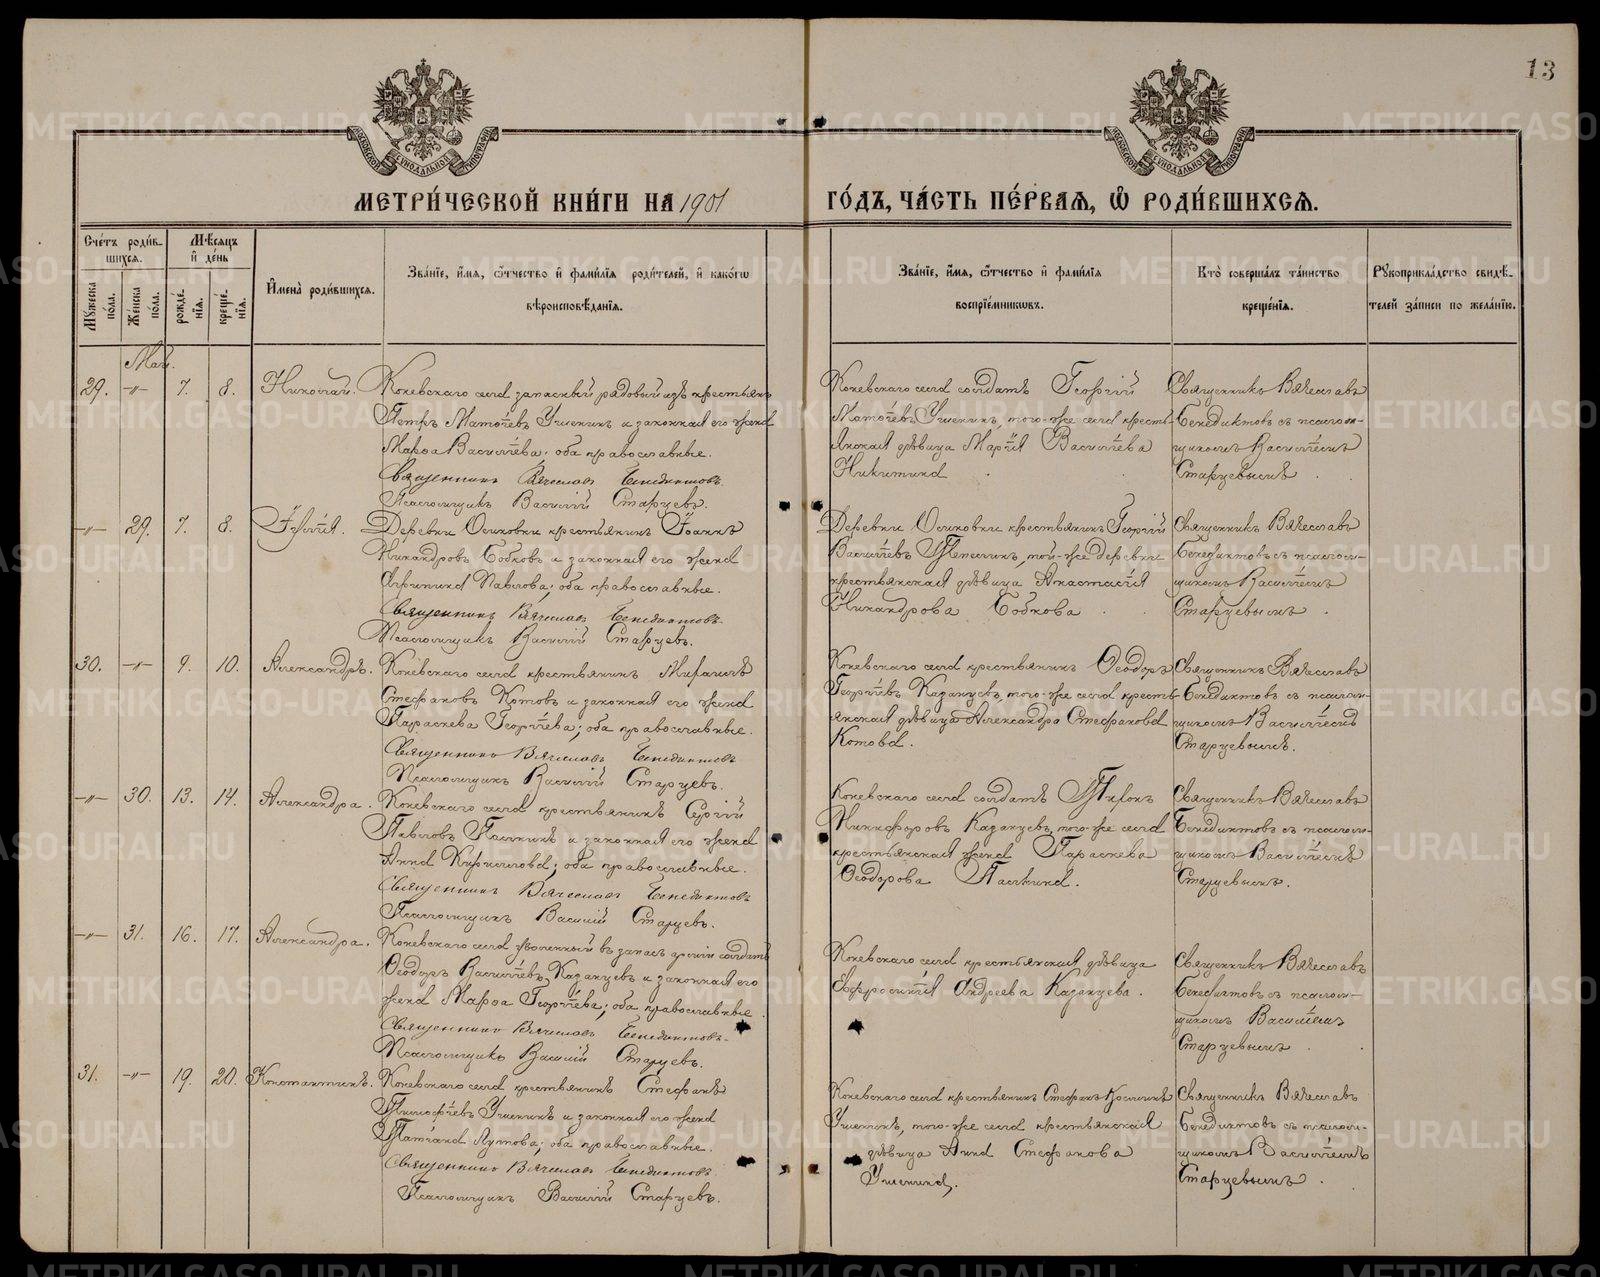 13
МЕТРИ́ЧЕСКОЙ КНИ́ГИ НА 1901 ГО́ДЪ, ЧА́СТЬ ПЕ́РВАЯ, Ѿ РОДИ́ВШИХСЯ.
Сче́тъ роди́в-
шихся.
Му́жеска по́ла.
Же́нска по́ла.
Мѣ́сяцъ и де́нь
рожде́нія.
креще́нія.
Имена̀ роди́вшихся.
Зва́ніе, и́мя, о́тчество и фами́лія роди́телей, и како́гѡ
вѣроисповѣ́данія.
Зва́ніе, и́мя, о́тчество и фами́лія
воспріе́мниковъ.
Кто̀ соверша́лъ та́инство
креще́нія.
Рукоприкла́дство свидѣ́-
телей за́писи по жела́нію.
Май.
29. —"— 7. 8. Николай.
Коневскаго села запасный рядовый изъ крестьянъ
Петръ Матѳіевъ Ушенинъ и законная его жена
Марѳа Васильева; оба православные.
Священникъ Вячеславъ Бенедиктовъ.
Псаломщикъ Василій Старцевъ.
Коневскаго села солдатъ Георгій
Матѳіевъ Ушенинъ, того-же села кресть-
янская дѣвица Марія Васильева
Никитина
Священникъ Вячеславъ
Бенедиктовъ съ псалом-
щикомъ Василіемъ
Старцевымъ.
—"— 29. 7. 8. Іулія.
Деревни Осиновки крестьянинъ Іоаннъ
Никандровъ Бобковъ и законная его жена
Агрипина Павлова; оба православные.
Священникъ Вячеславъ Бенедиктовъ.
Псаломщикъ Василій Старцевъ.
Деревни Осиновки крестьянинъ Георгій
Васильевъ той-же деревни
крестьянская дѣвица Анастасія
Никандрова Бобкова.
Священникъ Вячеславъ
Бенедиктовъ съ псалом-
щикомъ Василіемъ
Старцевымъ.
30. —"— 9. 10. Александръ.
Коневскаго села крестьянинъ Михаилъ
Стефановъ Котовъ и законная его жена
Параскева Георгіева; оба православные.
Священникъ Вячеславъ Бенедиктовъ
Псаломщикъ Василій Старцевъ.
Коневскаго села крестьянинъ Ѳеодоръ
Георгіевъ Казанцевъ, того-же села кресть-
янская дѣвица Александра Стефанова
Котова.
Священникъ Вячеславъ
Бенедиктовъ съ псалом-
щикомъ Василіемъ
Старцевымъ.
—"— 30. 13. 14. Александра.
Коневскаго села крестьянинъ Сергій
Павловъ Палкинъ и законная его жена
Анна Кириллова; оба православные.
Священникъ Вячеславъ Бенедиктовъ
Псаломщикъ Василій Старцевъ.
Коневскаго села солдатъ Тихонъ
Никифоровъ Казанцевъ, того-же села
крестьянская жена Параскева
Ѳеодорова Палкина.
Священникъ Вячеславъ
Бенедиктовъ съ псалом-
щикомъ Василіемъ
Старцевымъ.
—"— 31. 16. 17. Александра.
Коневскаго села уволенный въ запасъ арміи солдатъ
Ѳеодоръ Васильевъ Казанцевъ и законная его
жена Марѳа Георгіева; оба православные.
Священникъ Вячеславъ Бенедиктовъ.
Псаломщикъ Василій Старцевъ.
Коневскаго села крестьянская дѣвица
Евфросинія Андреева Казанцева.
Священникъ Вячеславъ
Бенедиктовъ съ псалом-
щикомъ Василіемъ
Старцевымъ.
31. —"— 19. 20. Константинъ.
Коневскаго села крестьянинъ Стефанъ
Тимофѣевъ Ушенинъ и законная его жена
Татіана оба православные.
Священникъ Вячеславъ Бенедиктовъ.
Псаломщикъ Василій Старцевъ.
Коневскаго села крестьянинъ Стефанъ
Ушенинъ, того-же села крестьянская
дѣвица Анна Стефанова
Ушенина.
Священникъ Вячеславъ
Бенедиктовъ съ псалом-
щикомъ Василіемъ
Старцевымъ.
METRIKI.GASO-URAL.RU